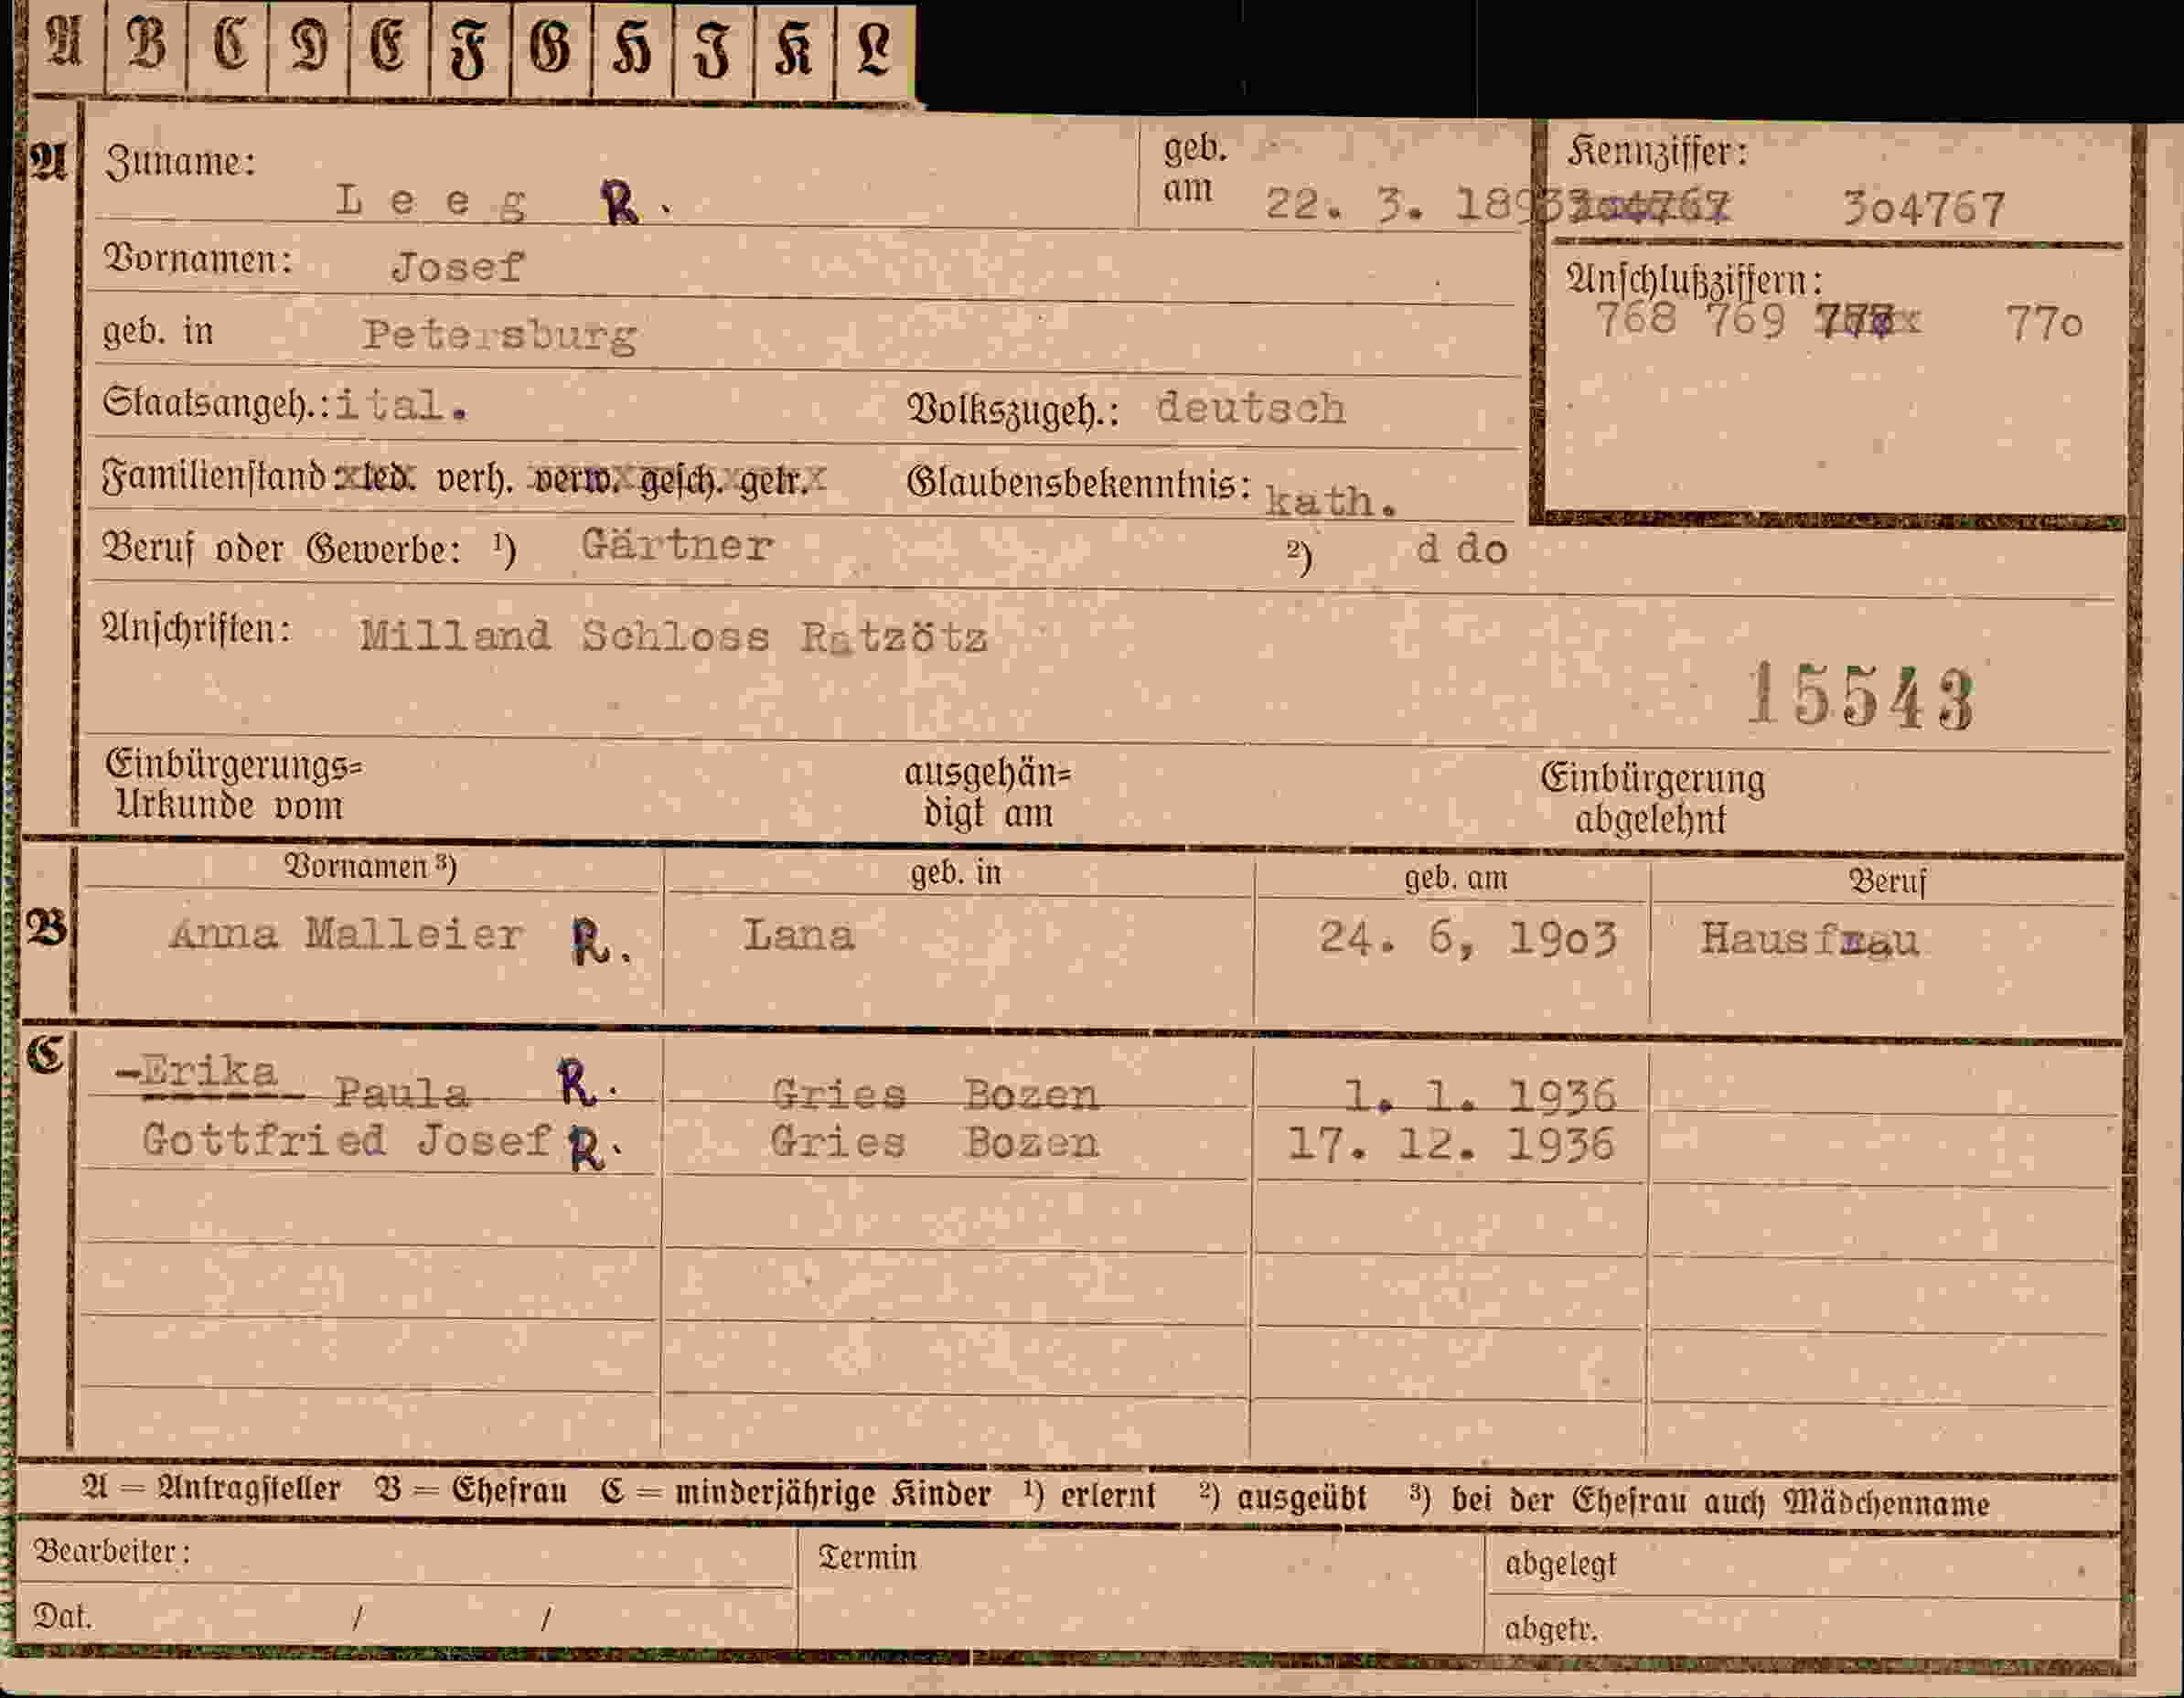 A B C D E F G H J K L
A Zuname: L e e g R. geb. am 22. 3. 1893 Kennziffer: 304767 3o4767
Vornamen: Josef
Anschlußziffern:
768 769 77o
geb. in Petersburg
Staatsangeh.: ital. Volkszugeh.: deutsch
Familienstand: led. verh. verw. gesch. getr. Glaubensbekenntnis: kath.
Beruf oder Gewerbe: ¹) Gärtner ²) d do
Anschriften: Milland Schloss Ratzötz
15543
Einbürgerungs= ausgehän= Einbürgerung
Urkunde vom digt am abgelehnt
Vornamen ³) geb. in geb. am Beruf
B Anna Malleier R. Lana 24. 6, 19o3 Hausfrau
C -Erika Paula R. Gries Bozen 1. 1. 1936
Gottfried Josef R. Gries Bozen 17. 12. 1936
A = Antragsteller B = Ehefrau C = minderjährige Kinder ¹) erlernt ²) ausgeübt ³) bei der Ehefrau auch Mädchenname
Bearbeiter: Termin abgelegt
Dat. / / abgetr.